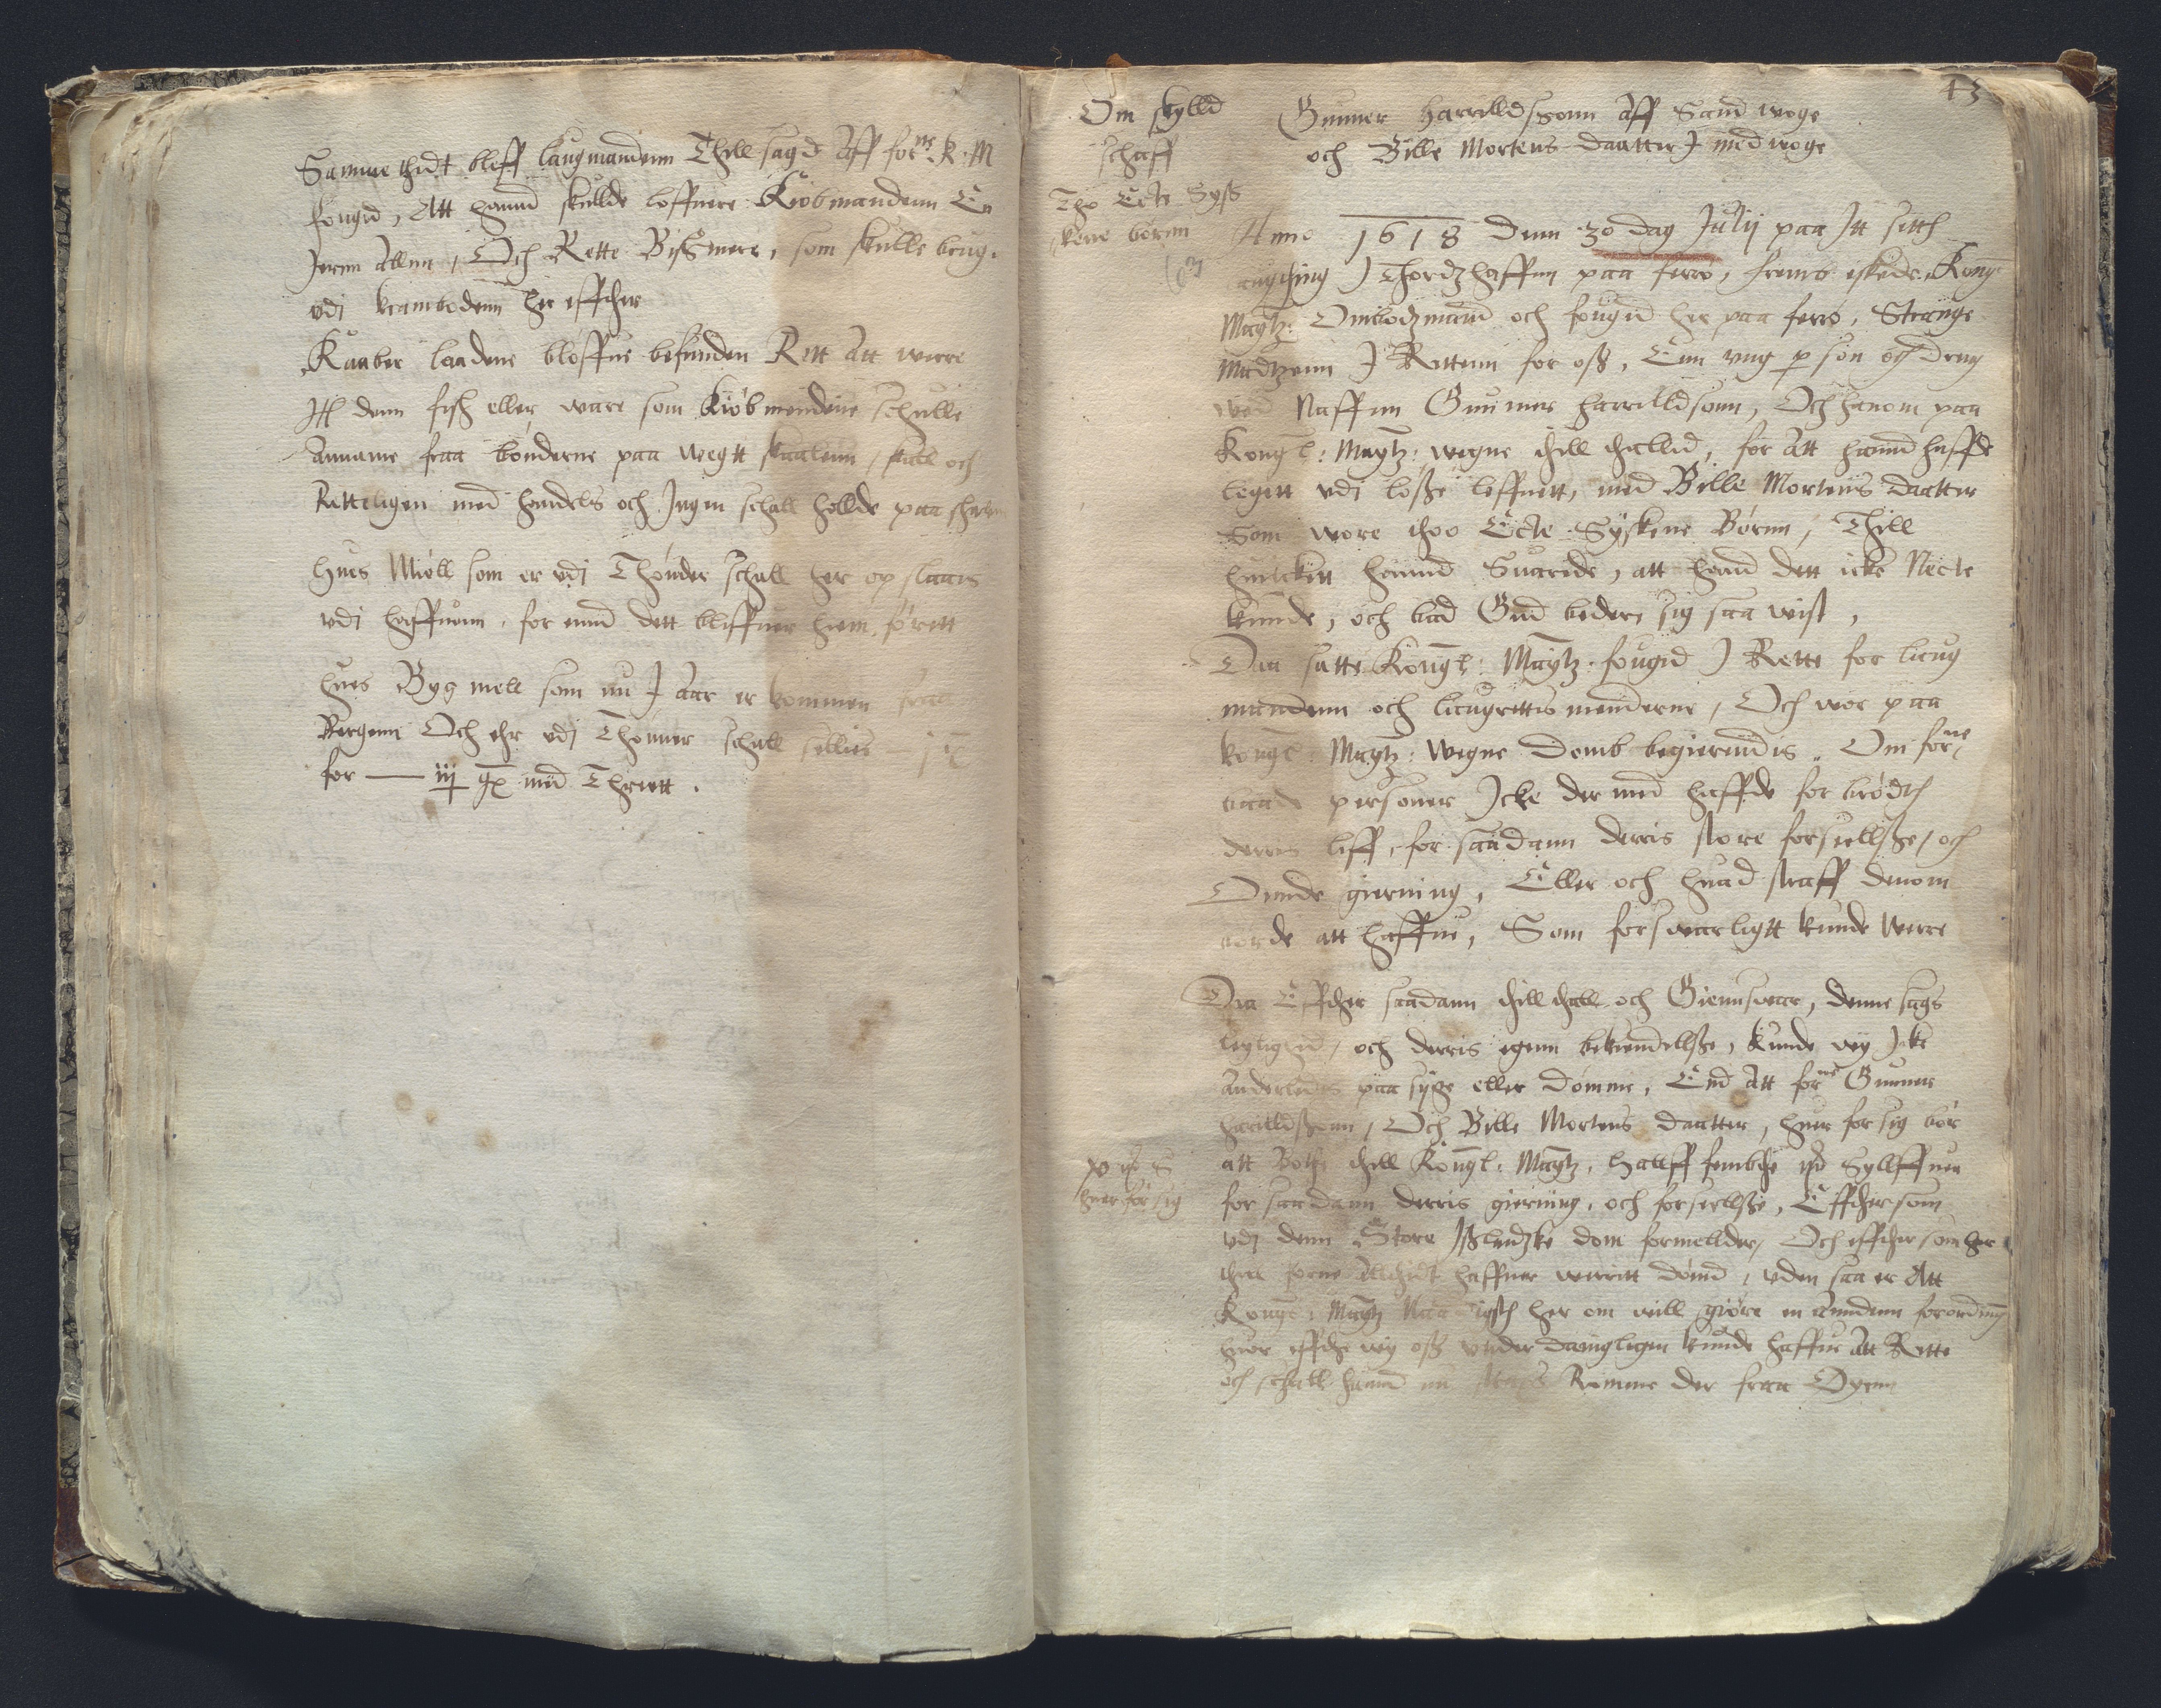 Samme thidt bleff laugmandenn Thill sagd Aff for:ne K: M
fougid, Att hannd skullde loffuere Kiøbmandenn En
Jernn Allnn, Och Rette Bissmere, som skulle brug.
vdj krambodenn her effther
Kaaber laadene bløffue befunden Rett Att werre
It denn fisk eller ware som Kiøbmendene schulle
Anname fraa bønderne paa wegtt skaalenn, skall och
Retteligen med handels och Ingen schall hollde paa
hues Miøll som er vdj Thønder schall her op slaais
vdj haffnonn, for ennd dett bliffuer hiem førett
hues Byg mell som nu J Aar er kommen fraa
Bergenn Och ehr vdj Thønner schall sellies
for — iij med Threett.
43
Om skylld
schaff
Tho Ecte Syss
kene børnn
Gunner Harrilldssonn Aff Sand woge
och Bille Mortens daatter J med woge
Anno 1618 denn 30 dag Julij paa Itt setth
J Thordzhaffnn paa ferrø, fremb eskede Kong
Maytz: Ombodzmand och fougid her paa ferrø, Strange
Madtzenn J Rettenn for oss, Enn vng p son og dreng
wed Naffnn Gunner harrilldsonn, Och hanom paa
Kongl: Maytz: wegne thill thallid, for Att hannd haffde
legett vdj løsse leffnett, med Bille Mortens daatter
Som wore thoo Ecte Syskene Børnn, Thill
huilckitt hannd Suarede, att hand dett icke Necte
kunde, och bad Gud bedere sig saa wist,
Daa satte Kongl: Maytz: fougid J Rette for laug
mandenn och laugrettis menderne, Och wor paa
kongl: Maytz: Wegne Domb begierendis, Om for:ne
baade personer Jcke der med haffde for brødth
derris liff, for saadann derris store forseellsse, och
Onnde gierning, Eller och huad straff denom
borde att haffue, Som forswarligtt kunde Werre
Daa Effther saadann thill thall och Giennsuar, denne sags
leylighed, och derris egenn bekiendellsse, kunde wy Jcke
Anderledes paa sige eller dømme, End Att for:ne Gunner
harilldssonn, Och Bille Mortens daatter, huer for sig bør
att Bøthe thill Kongl: Maytz, Hallff fembthe Syllffuer
for saadann derris gierning, och forseellsse, Effthersom
vdj denn Store Isslendske dom formellder, Och effthersom her
haffuer werritt dømd, vden saa er Att
Kongl: Maytz Naadigsth her om will giøre en Anndenn forordning
huor effther wy oss vnder danigligen kunde haffue Att Rette
och schall hannd nu strags Rømme der fraa Øyenn
huer for sig